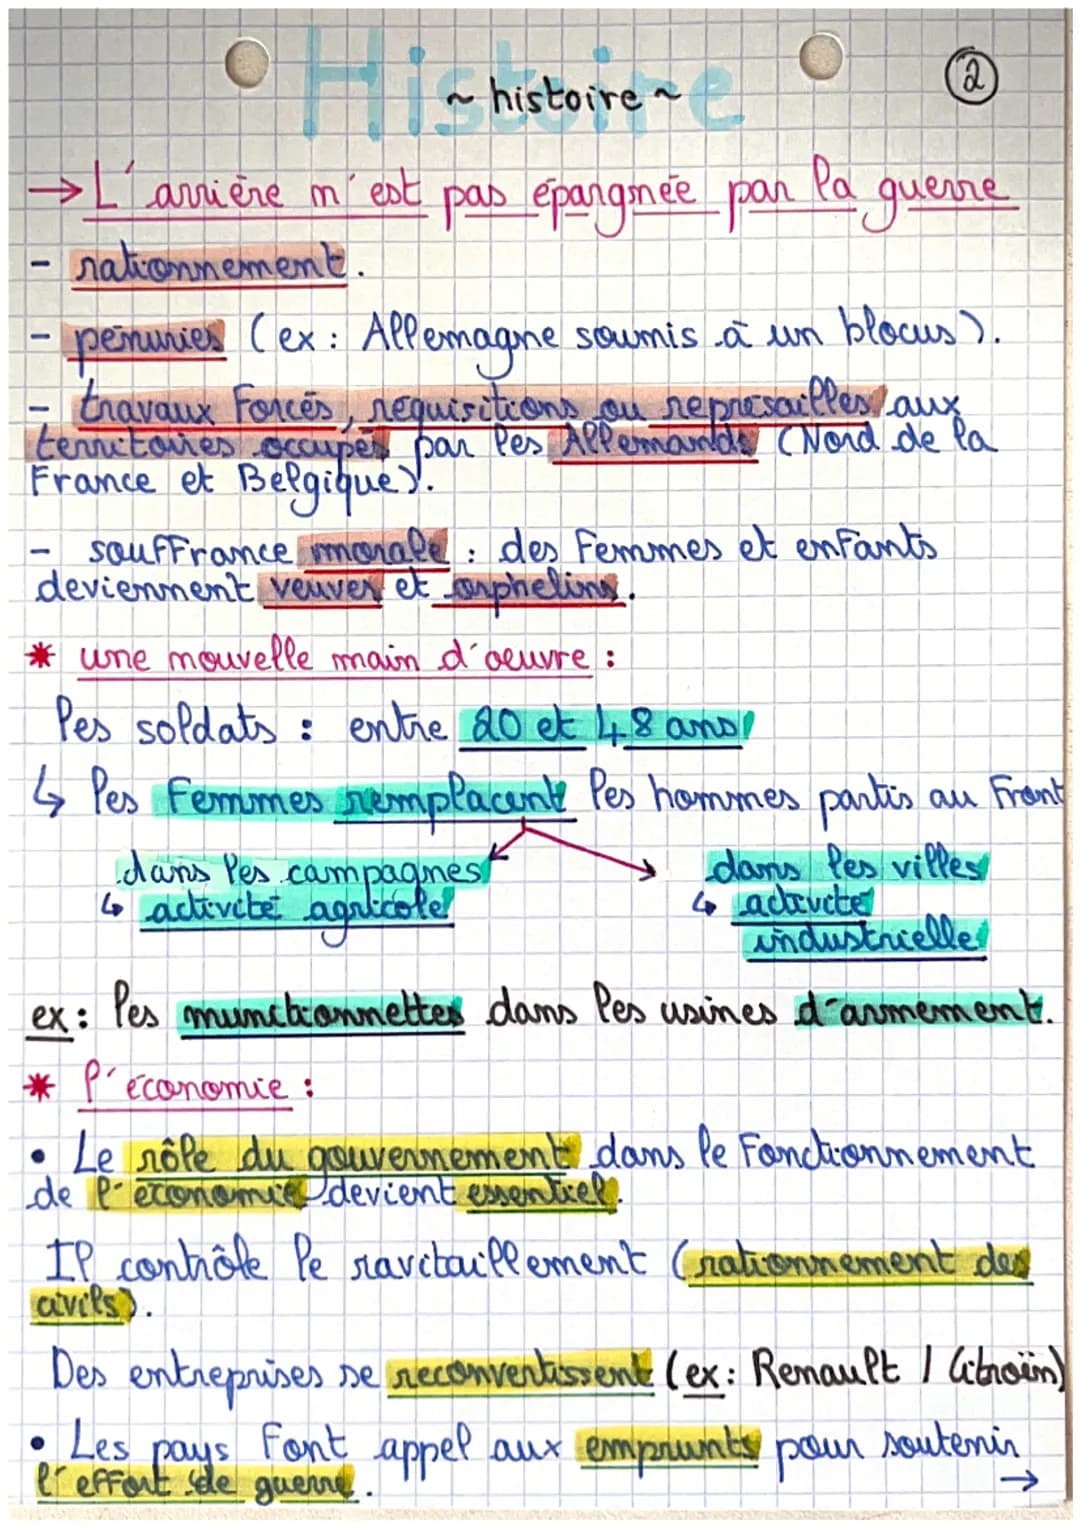 Histoire
~ histoire ~
2
→ L'arrière n'est pas épargnée par la guerre
- rationnement.
- pénuries (ex : Allemagne soumis à un blocus).
- travaux forcés, réquisitions ou représailles aux
territoires occupés par les Allemands (Nord de la
France et Belgique).
- souffrance morale : des femmes et enfants
deviennent veuves et orphelins.
* une nouvelle main d'oeuvre :
les soldats : entre 20 et 48 ans
↳ les femmes remplacent les hommes partis au front
dans les campagnes
↳ activité agricole
dans les villes
↳ activité
industrielle
ex : les munitionnettes dans les usines d'armement.
* l'économie :
• Le rôle du gouvernement dans le fonctionnement
de l'économie devient essentiel.
Il contrôle le ravitaillement (rationnement des
civils).
Des entreprises se reconvertissent (ex : Renault / Citroïn)
• Les pays font appel aux emprunts pour soutenir
l'effort de guerre.
→